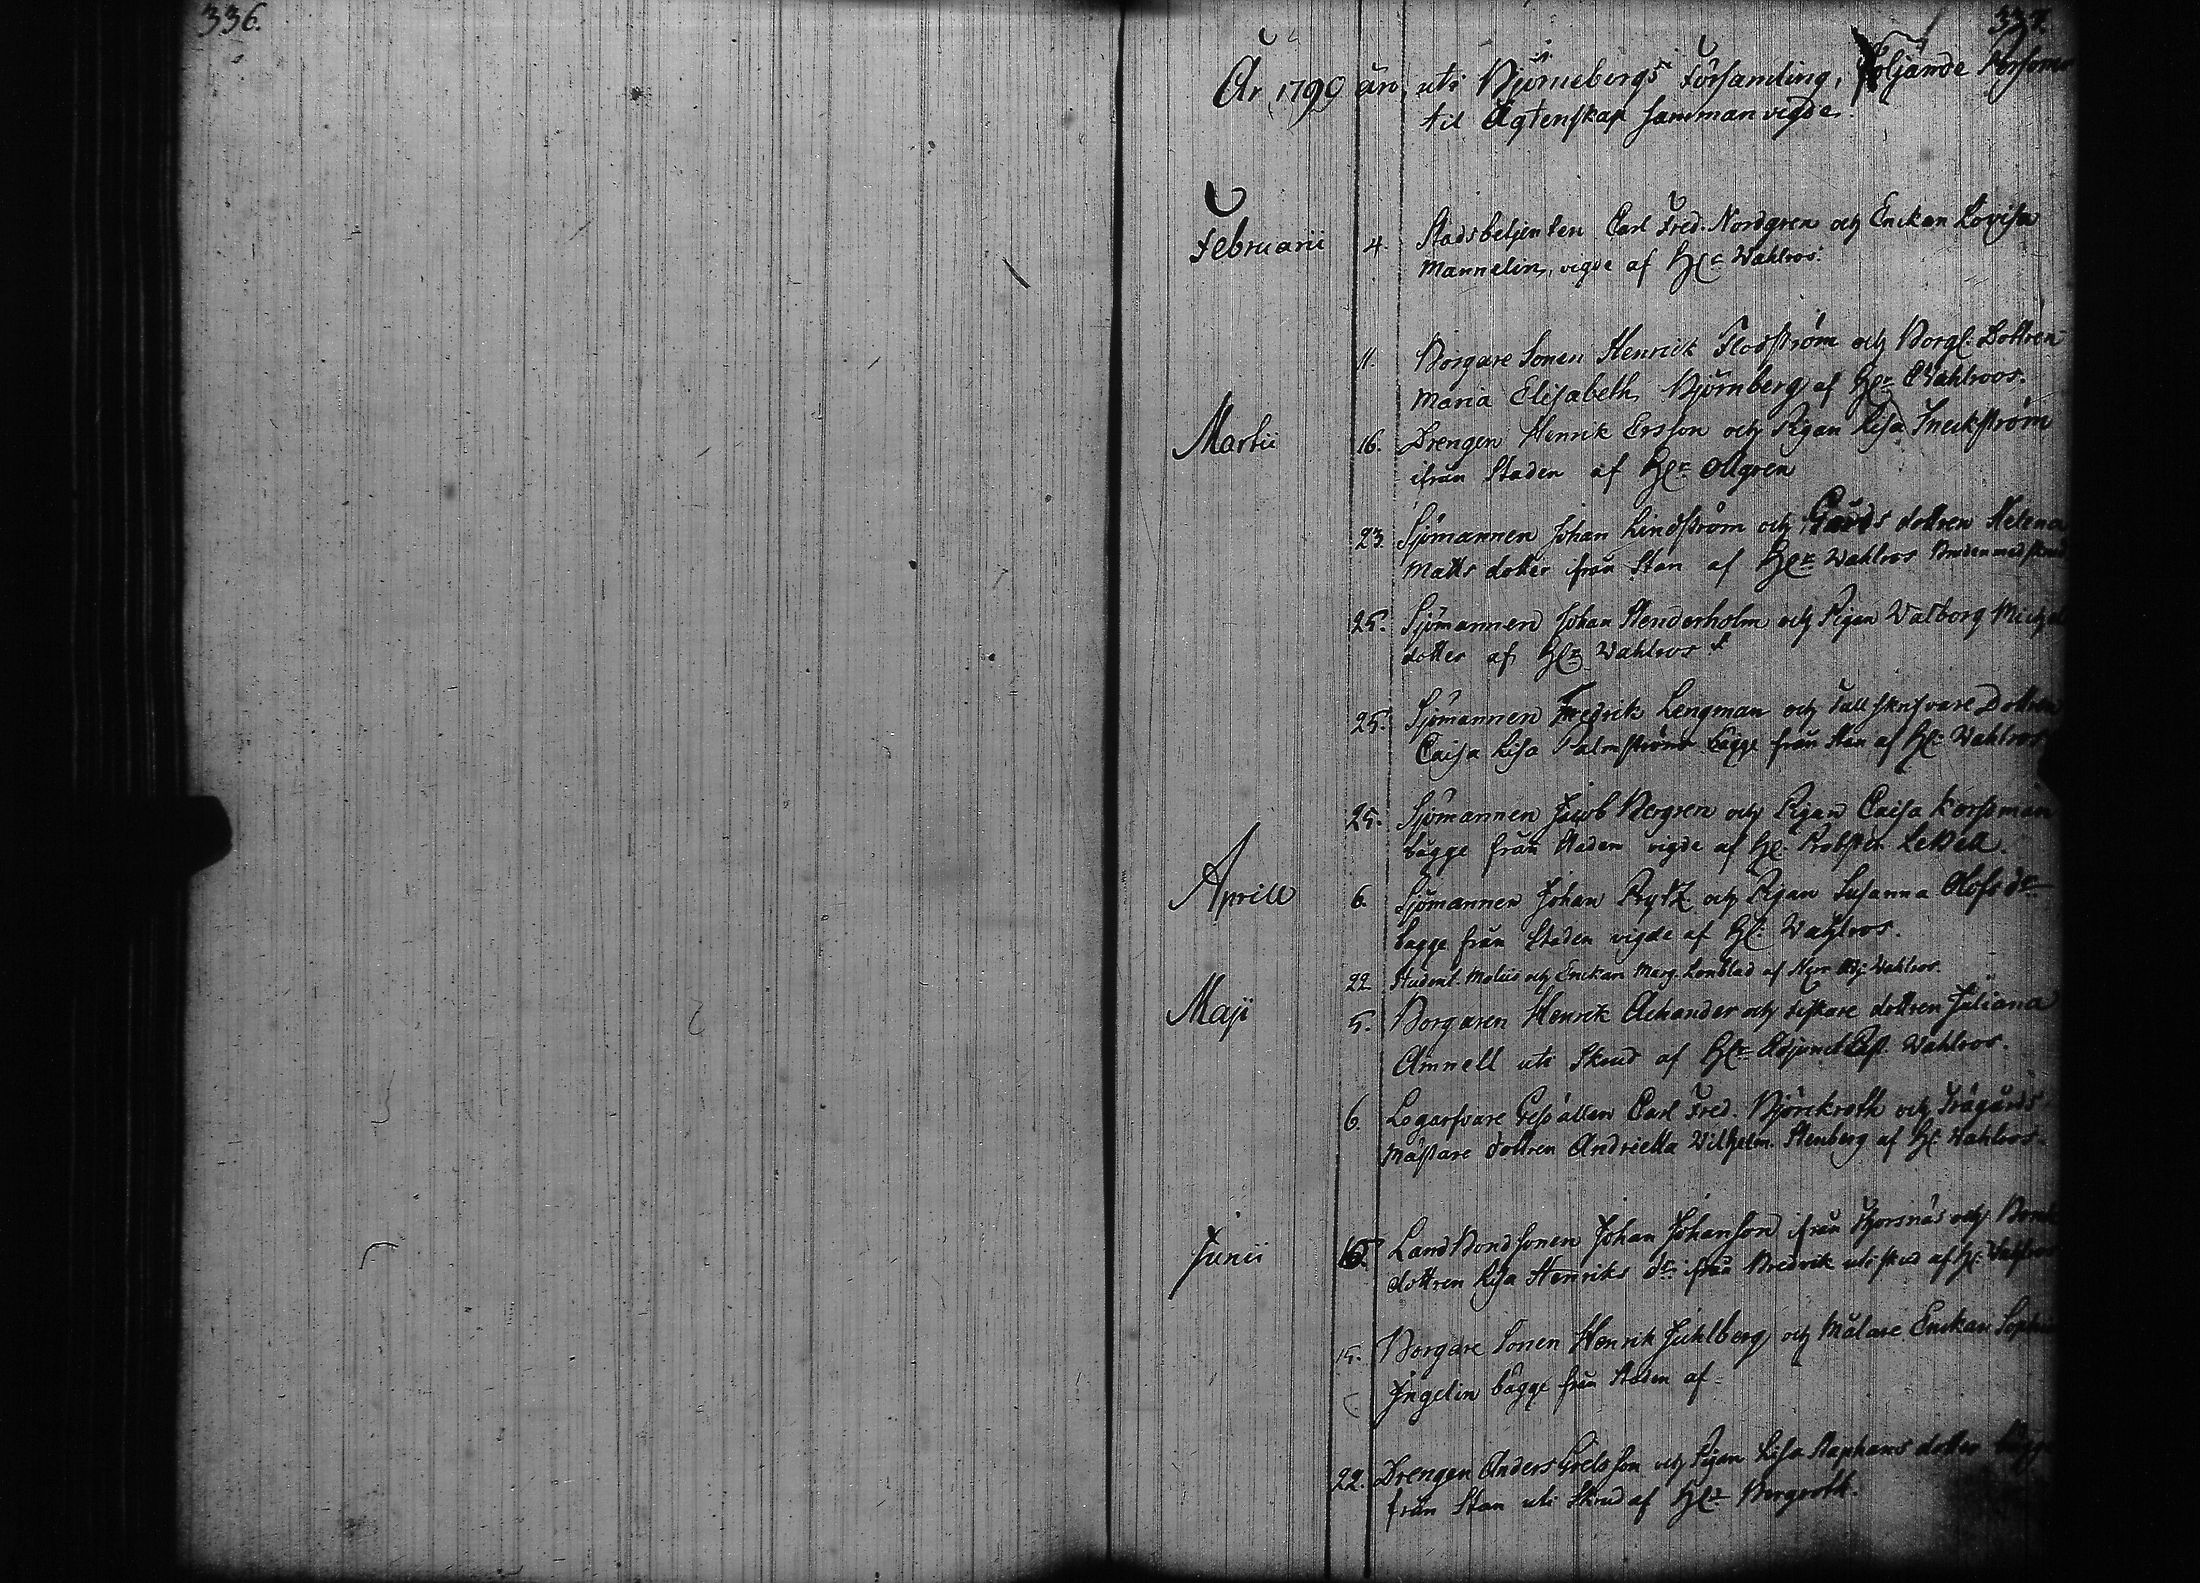 336.
337.
År 1790 äro, uti Björneborgs Församling, Följande Personer
til Ägtenskap samman vigde.
Februarii 4. Stadsbetjenten Carl Fred. Nordgren och Enckan Lovisa
Mannelin, vigde af Hr Wahlroos.
11. Borgare Sonen Henrick Flodström och Borg. Dottren
Maria Elisabeth Björnberg af Hr Wahlroos.
Martii 16. Drengen Henrik Ersson och Pigan Lisa
ifrån Staden af Hr Ollgren
23. Sjömannen Johan Lindström och dottren Helena
Matts dotter från Stan af Hr Wahlroos
25. Sjömannen Johan Stenderholm och Pigan Walborg
dotter af Hr Wahlroos
25. Sjömannen Fredrik Lengman och Tullskrifvare Dottren
Caisa Lisa Palmström bägge från Stan af Hr Wahlroos
25. Sjömannen Jacob Bergren och Pigan Caisa Korsman
bägge från Staden vigde af Hr Probsten Lebell.
Aprill 6. Sjömannen Johan Prytz och Pigan Susanna Olofs dr
bägge från Staden vigde af Hr Wahlroos.
22 Student. Molin och Enckan Marg. Lonblad af Herr Adj. Wahlroos.
Maji 5. Borgaren Henrik Achander och Fiskare dottren Juliana
Amnell uti Skrud af Hr Adjunct Wahlroos.
6. Logarfvare Gesällen Carl Fred. Björckroth och Trägårds
Mästare dottren Andrietta Vilhelm. Stenberg af Hr Wahlroos.
Junii 15. LandBondsonen Johan Johansson ifrån Thorsnäs och
dottren Lisa Henriks dr ifrån Bredvik uti skrud af Hr Wahlroos
15. Borgare Sonen Henrik Juhlberg och Målare Enckan Sophia
Ingelin bägge från Staden af
22. Drengen Anders Grelsson och Pigan Lisa Staphans dotter bägge
från Stan uti Skrud af Hr Bergroth.